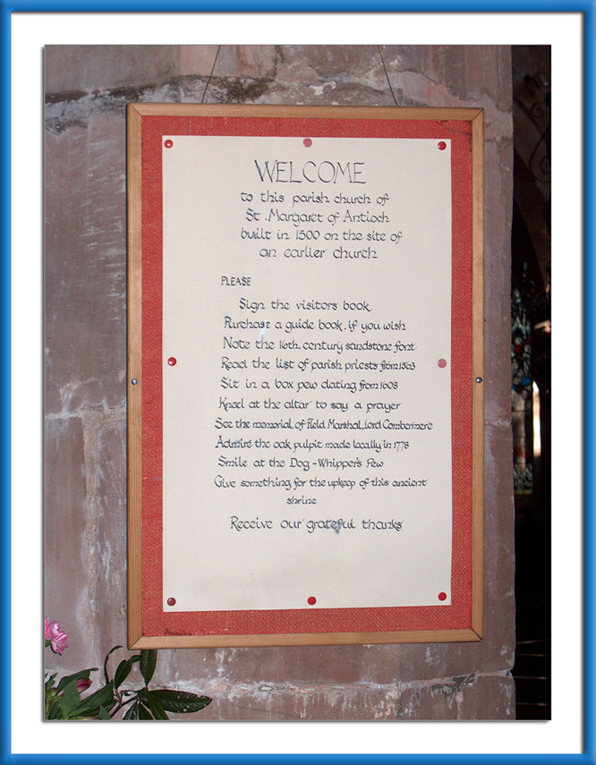 WELCOME
to this parish church of
St. Margaret of Antioch
built in 1500 on the site of
an earlier church
PLEASE
Sign the visitors book
Purchase a guide book, if you wish
Note the 16th. century sandstone font
Read the list of parish priests from 1563
Sit in a box pew dating from 1608
Kneel at the altar to say a prayer
See the memorial of Field Marshal, Lord Combermere
Admire the oak pulpit made locally in 1778
Smile at the Dog-Whipper's Pew
Give something for the upkeep of this ancient
shrine
Receive our grateful thanks